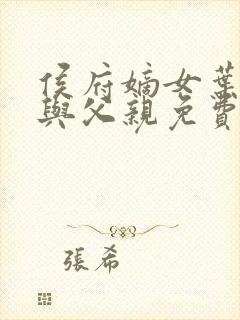 侯府嫡女葉
與父親免費
張希